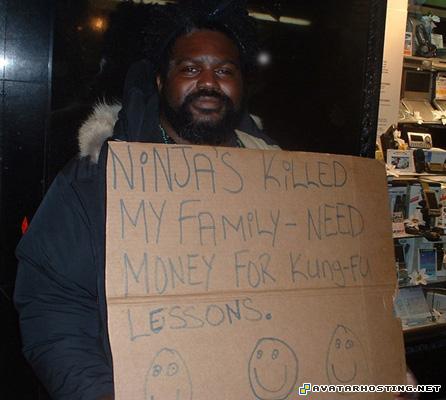 NiNJA'S KiLLED
MY FAMiLY - NEED
MONEY FOR KUNG-FU
LESSONS.
AVATARHOSTING.NET